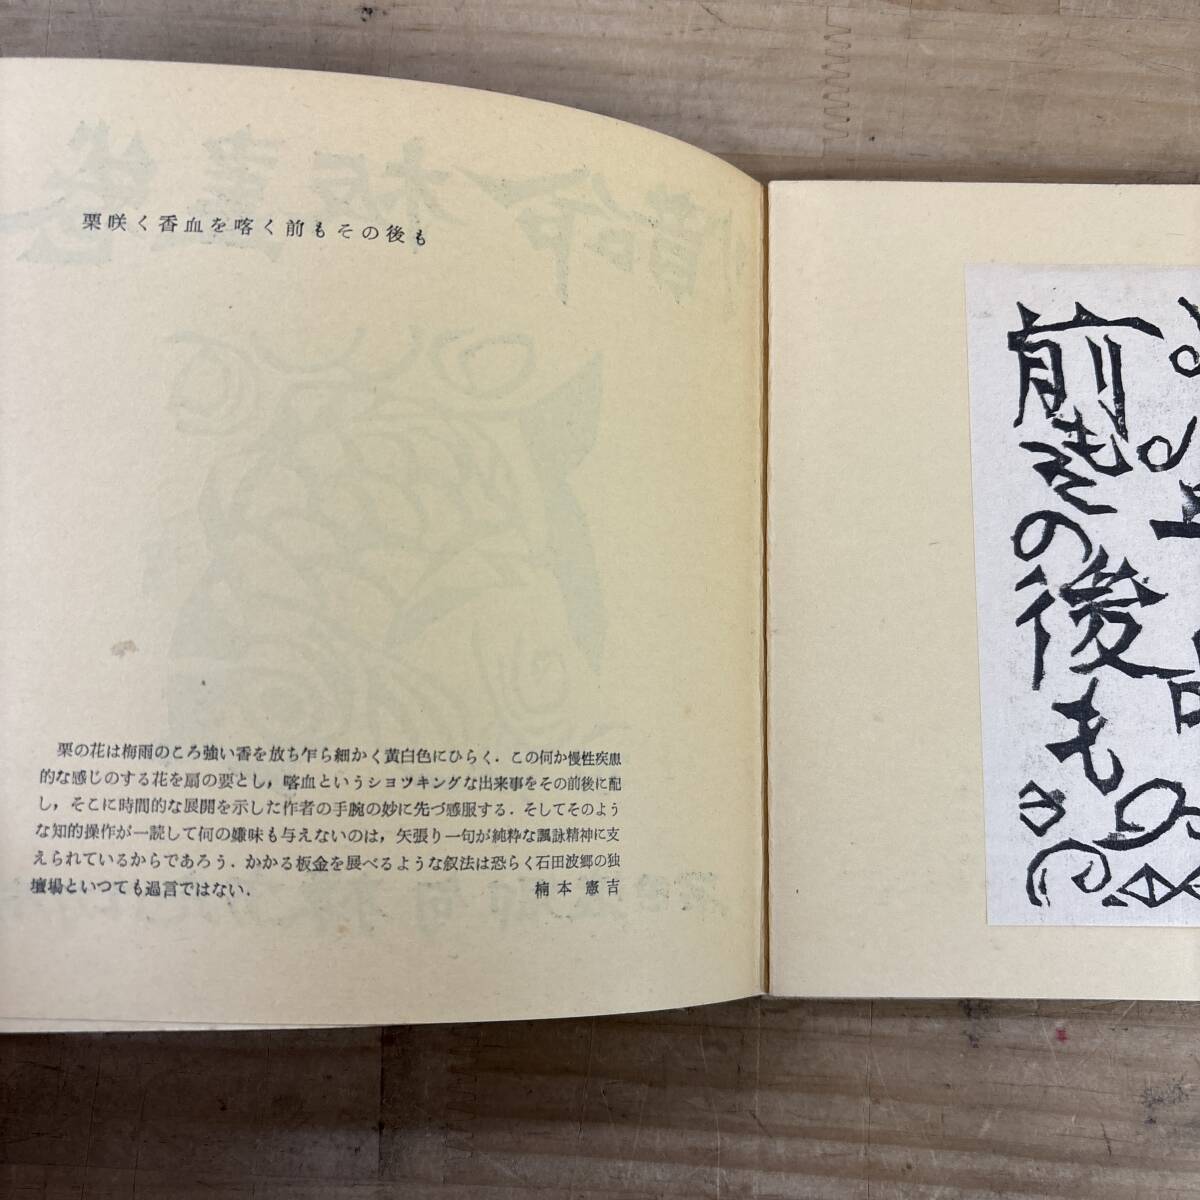 栗咲く香血を喀く前もその後も
栗の花は梅雨のころ強い香を放ち乍ら細かく黄白色にひらく．この何か慢性疾患
的な感じのする花を扇の要とし，喀血というシヨツキングな出来事をその前後に配
し，そこに時間的な展開を示した作者の手腕の妙に先づ感服する．そしてそのよう
な知的操作が一読して何の嫌味も与えないのは，矢張り一句が純粋な諷詠精神に支
えられているからであろう．かかる板金を展べるような叙法は恐らく石田波郷の独
壇場といつても過言ではない．
楠本憲吉
前もそ
の後も